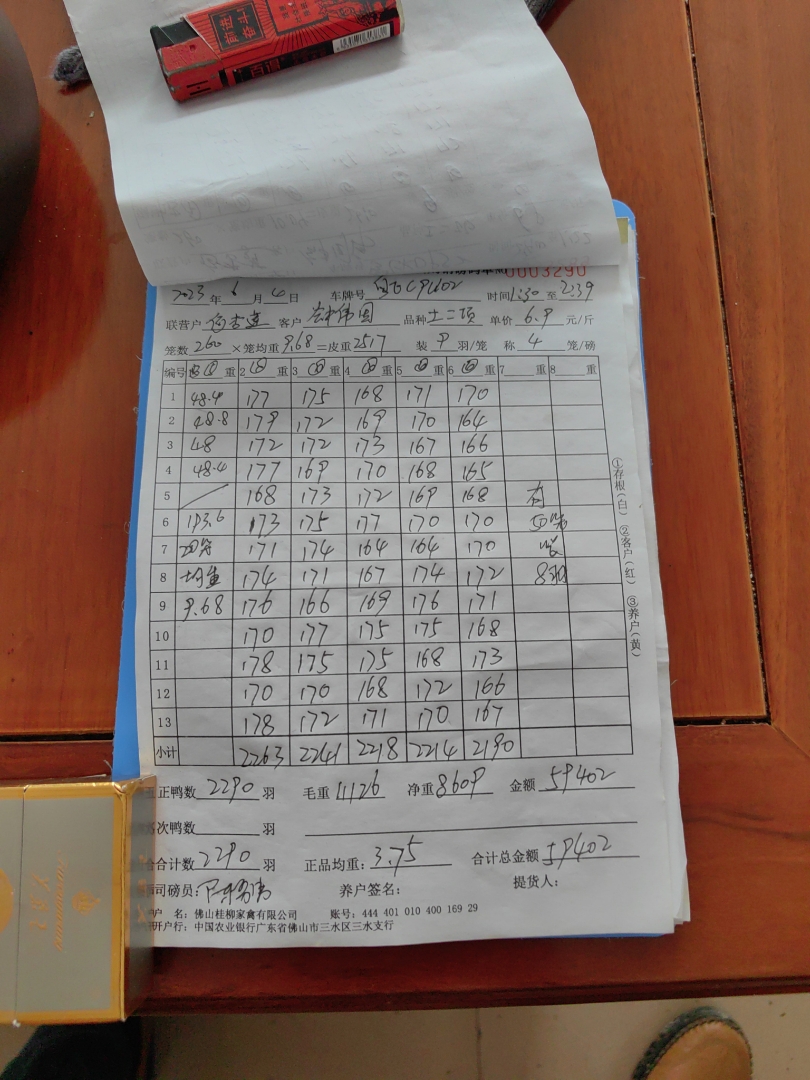 百源
0003290
2023年 6月 4日 车牌号 时间1:30至2:39
联营户 客户 品种土二项 单价 6.9 元/斤
笼数 260 ×笼均重 9.68 =皮重 2517 装 9 羽/笼 称 4 笼/磅
编号 重 2 重 3 重 4 重 5 重 6 重 7 重 8 重
1 48.4 177 175 168 171 170
2 48.8 179 172 169 170 164
3 48 172 172 173 167 166
4 48.4 177 169 170 168 165
5 168 173 172 169 168 有
6 193.6 173 175 177 170 170
7 171 174 164 164 170
8 均重 174 171 167 174 172
9 9.68 176 166 169 176 171
10 170 177 175 175 168
11 178 175 175 168 173
12 170 170 168 172 166
13 178 172 171 170 167
小计 2263 2241 2218 2214 2190
正鸭数 2290 羽 毛重 11126 净重 8609 金额 59402
次鸭数 羽
合计数 2290 羽 正品均重: 3.75 合计总金额 59402
司磅员: 养户签名: 提货人:
户 名: 佛山桂柳家禽有限公司 账号: 444 401 010 400 169 29
开户行: 中国农业银行广东省佛山市三水区三水支行
①存根(白) ②客户(红) ③养户(黄)